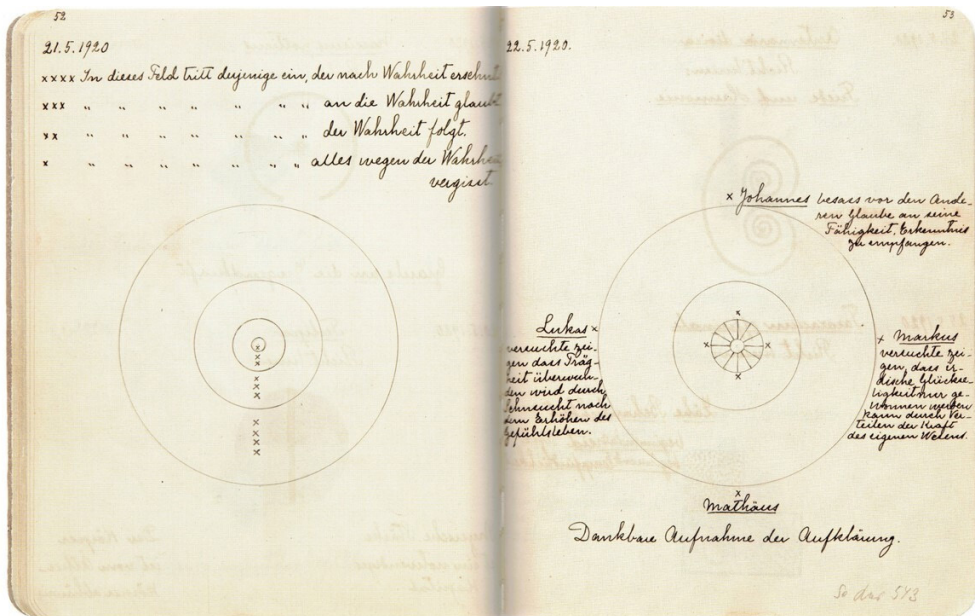 52
21.5.1920
xxxx In dieses Feld tritt derjenige ein, der nach Wahrheit ersehnt
xxx " " " " " " " an die Wahrheit glaubt
xx " " " " " " " der Wahrheit folgt.
x " " " " " " " alles wegen der Wahrheit
vergisst
53
22.5.1920.
x Johannes besass vor den Ande-
ren Glaube an seine
Fähigkeit, Erkenntnis
zu empfangen.
Lukas x
versuchte zei-
gen dass Träg-
heit überwun-
den wird durch
Sehnsucht nach
dem Erhöhen des
Gefühlsleben.
x Markus
versuchte zei-
gen, dass ir-
dische Glücksee-
ligkeit nur ge-
wonnen werden
kann durch Ver-
teilen der Kraft
des eigenen Wesens.
x
Mathäus
Dankbare Aufnahme der Aufklärung.